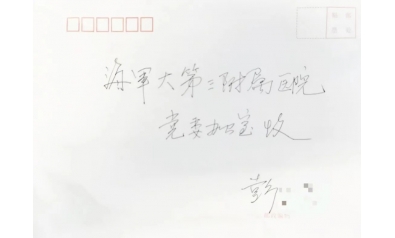 海军大第三附属医院
党委办公室 收
彭